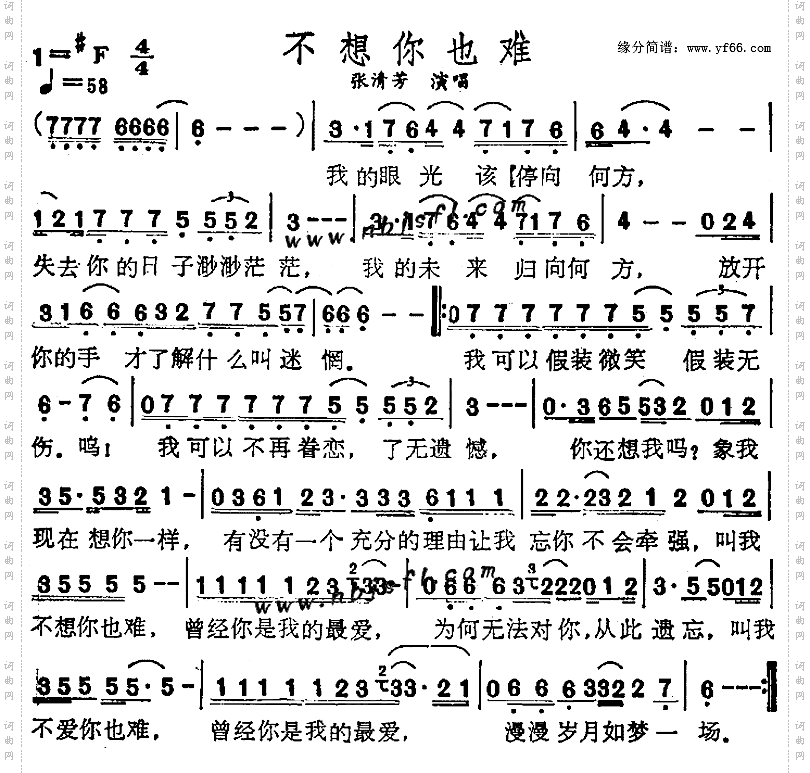 不想你也难
缘分简谱：www.yf66.com
1=#F 4/4
♩=58
张清芳 演唱
(7777 6666 | 6 - - - ) | 3·1 764 4 7176 | 64·4 - - |
我的眼光该停向何方，
121 777 5 552 | 3 - - - | 3·1 764 4 7176 | 4 - - 024 |
失去你的日子渺渺茫茫， 我的未来归向何方， 放开
3166 632 77 557 | 666 - - |: 0777 7775 5 557 |
你的手 才了解什么叫迷惘。 我可以假装微笑 假装无
6 - 7 6 | 0777 7775 5 552 | 3 - - - | 0·365532 012 |
伤。呜！ 我可以不再眷恋， 了无遗憾， 你还想我吗？象我
35·532 1 - | 0361 23·333 6111 | 22·2321 2 012 |
现在想你一样， 有没有一个充分的理由让我忘你不会牵强，叫我
355 55 - - | 1111 1123 33 | 066 63 222012 | 3·55012 |
不想你也难，曾经你是我的最爱， 为何无法对你，从此遗忘，叫我
355 55·5 | 1111 1123 33·21 | 066 6332 2 7 | 6 - - - :|
不爱你也难， 曾经你是我的最爱， 漫漫岁月如梦一场。
词曲网